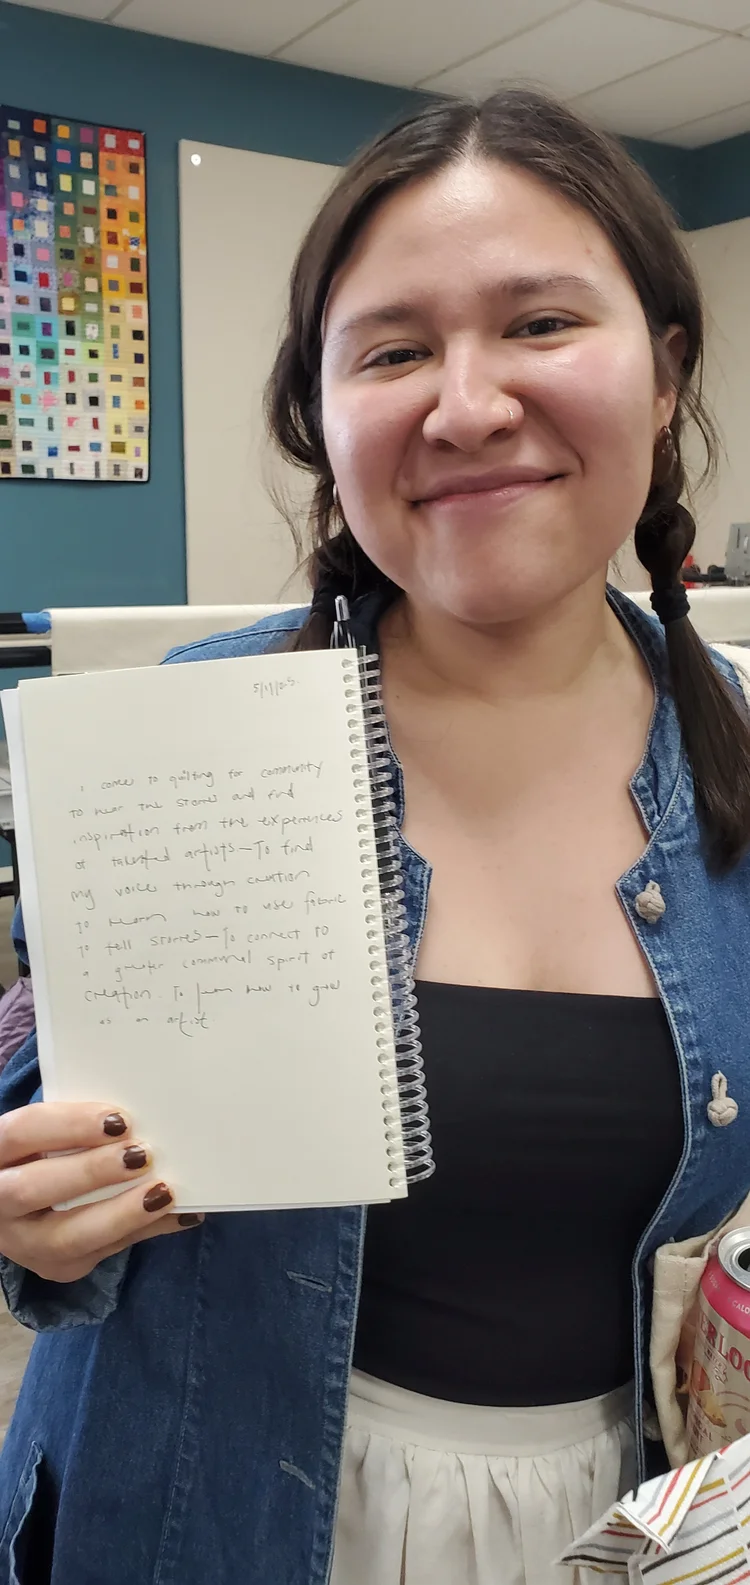 5/11/25.
I come to quilting for community
to hear the stories and find
inspiration from the experiences
of talented artists—To find
my voice through creation
to learn how to use fabric
to tell stories—To connect to
a greater communal spirit of
creation. To learn how to grow
as an artist
CALO
ER LOO